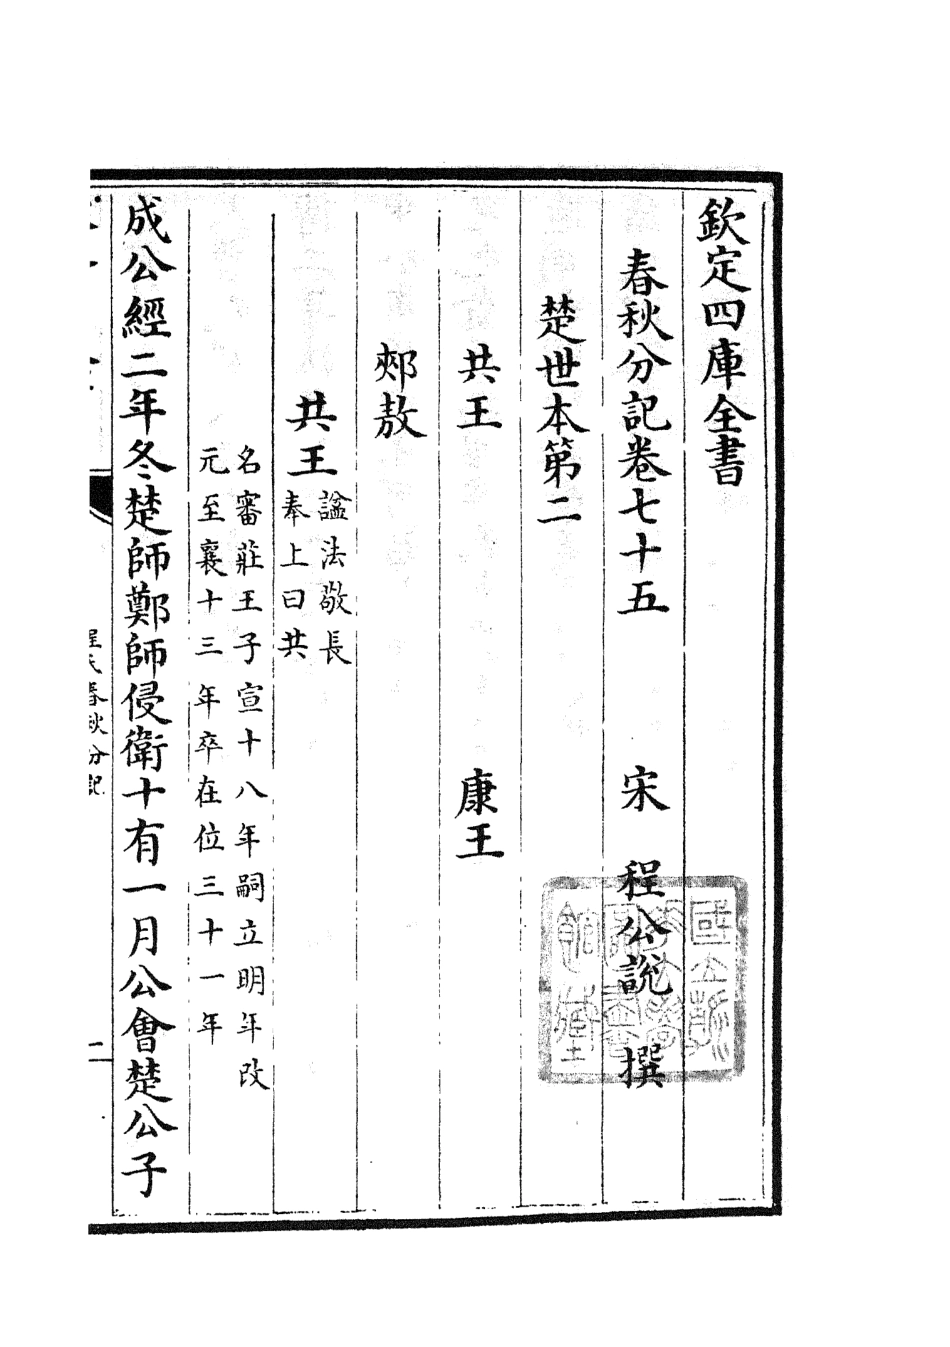 欽定四庫全書
春秋分記卷七十五　宋　程公說　撰
楚世本第二
共王　康王
郟敖
共王
諡法敬長
奉上曰共
名審莊王子宣十八年嗣立明年改
元至襄十三年卒在位三十一年
成公經二年冬楚師鄭師侵衛十有一月公會楚公子
程氏春秋分記
二